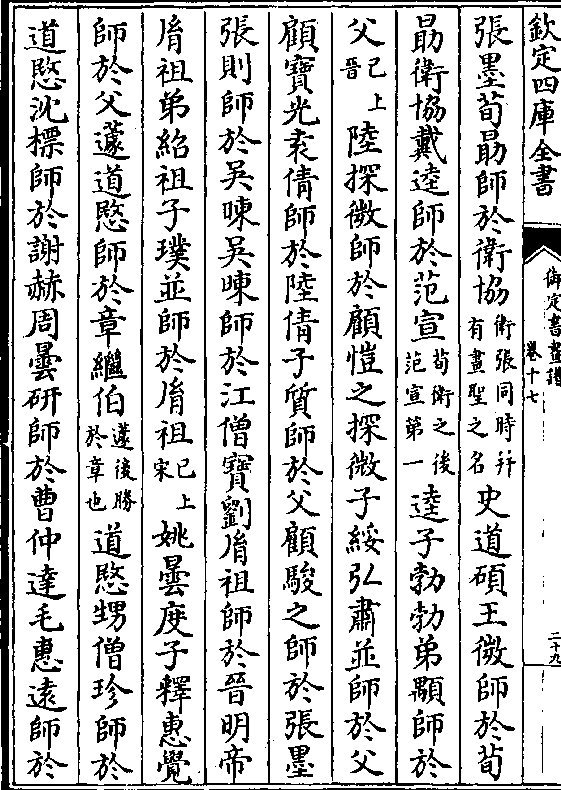 欽定四庫全書
御定書畫譜
卷十七
二十九
張墨荀勗師於衛協衛張同時并有畫聖之名史道碩王微師於荀
勗衛協戴逵師於范宣荀衛之後范宣第一逵子勃勃弟顒師於
父已上晉陸探微師於顧愷之探微子綏弘肅並師於父
顧寶光袁倩師於陸倩子質師於父顧駿之師於張墨
張則師於吳暕吳暕師於江僧寶劉胤祖師於晉明帝
胤祖弟紹祖子璞並師於胤祖已上宋姚曇度子釋惠覺
師於父蘧道愍師於章繼伯蘧後勝於章也道愍甥僧珍師於
道愍沈標師於謝赫周曇研師於曹仲達毛惠遠師於